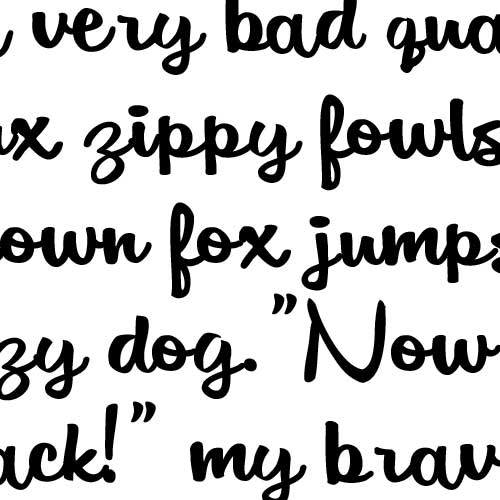 very bad qua
ux zippy fowls
own fox jumps
zy dog." Now
ack!" my brav